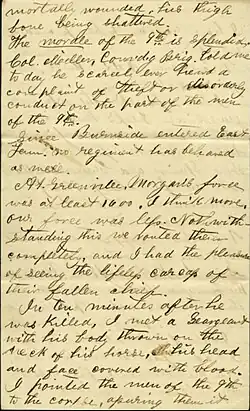 mortally wounded, his thigh
bone being shattered.
The morale of the 9th is splendid
Col. Miller, Comdg Brig. told me
to day he scarcely ever heard a
complaint of theft or disorderly
conduct on the part of the men
of the 9th.
Since Burnside entered East
Tenn. no regiment has behaved
as well.
At Greenville, Morgan's force
was at least 1600, I think more,
our force was less. Notwith-
standing this we routed them
completely, and I had the pleasure
of seeing the lifeless carcass of
their fallen chief.
In ten minutes after he
was killed, I met a Seargeant
with his body thrown on the
neck of his horse, his head
and face covered with blood.
I pointed the men of the 9th
to the corpse, assuring them it